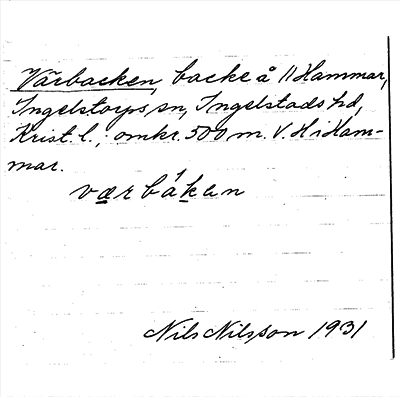 Vårbacken, backe å 11 Hammar,
Ingelstorps sn, Ingelstads hd,
Krist. l., omkr. 500 m. V. H i Ham-
mar.
værbákan
Nils Nilsson 1931